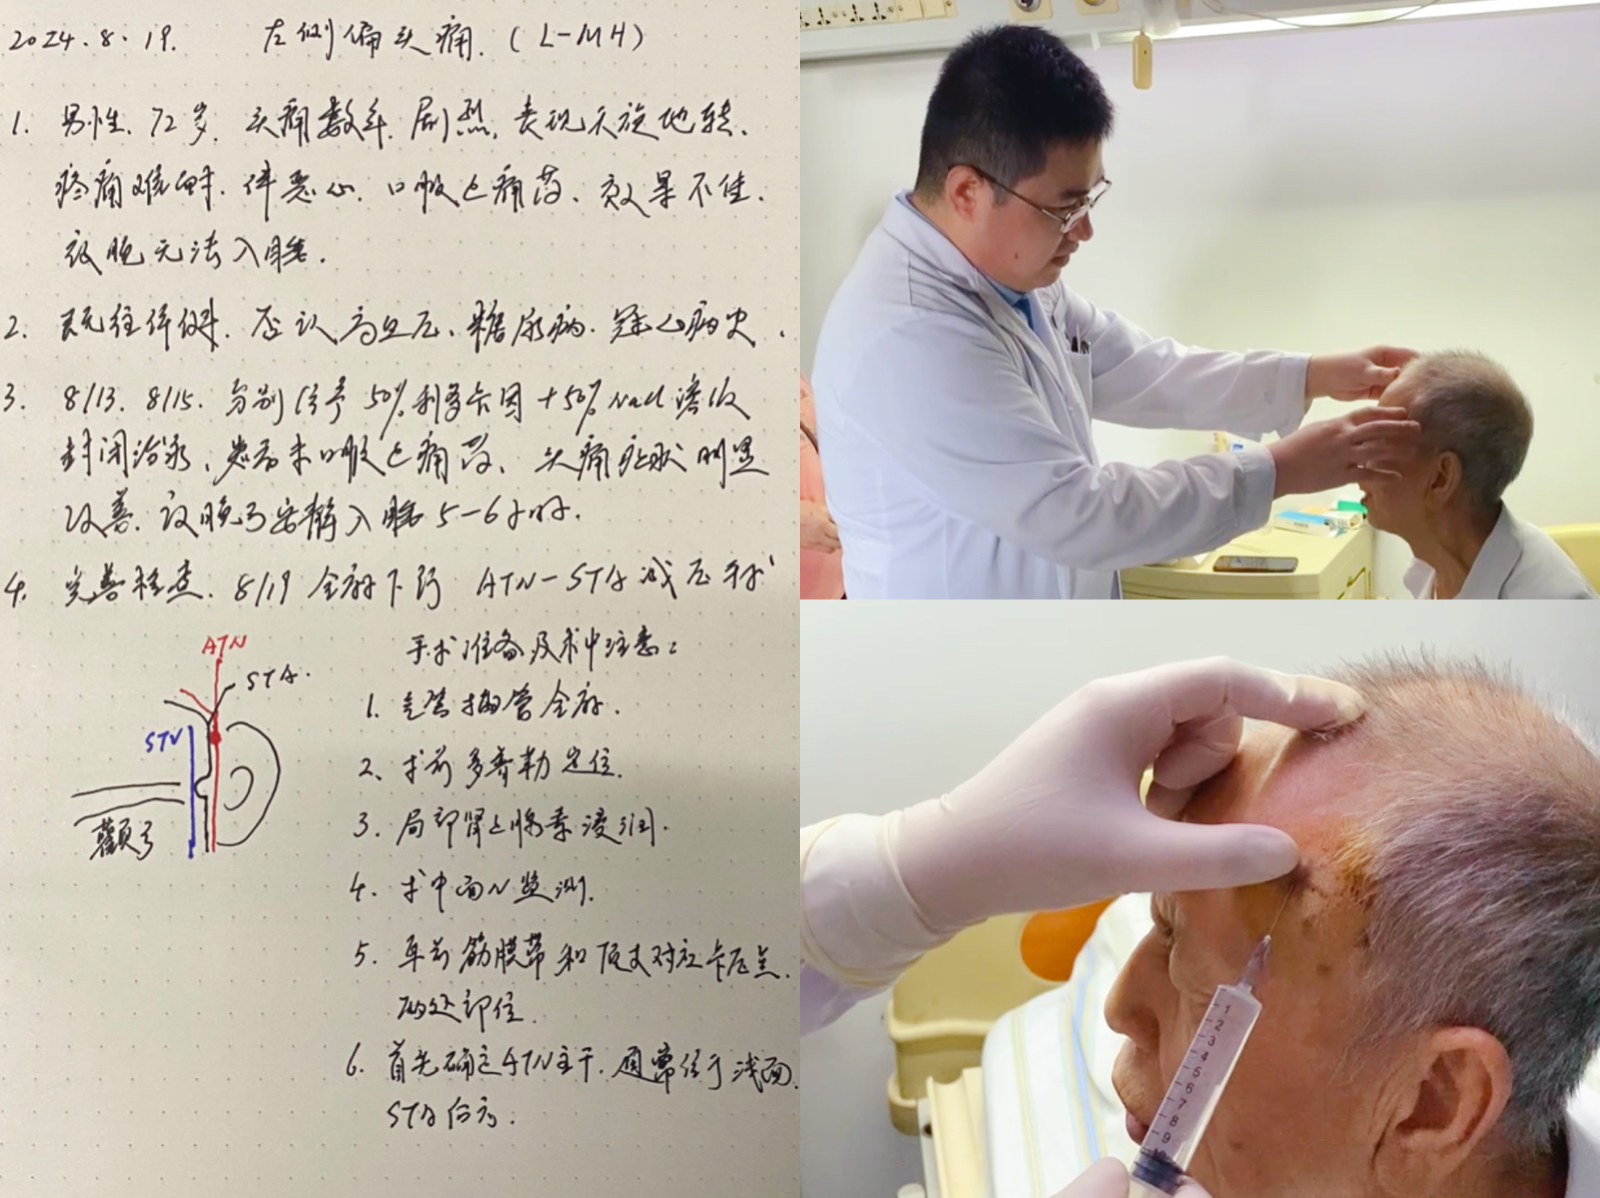 2024.8.19. 左侧偏头痛.(L-MH)
1. 男性.72岁.头痛数年.剧烈.表现天旋地转.
疼痛难耐.伴恶心.口服止痛药.效果不佳.
夜晚无法入睡.
2. 既往体健.否认高血压、糖尿病.冠心病史.
3. 8/13. 8/15. 分别给予50%利多卡因+50%NaCl溶液
封闭治疗、患者未口服止痛药、头痛症状明显
改善.夜晚可安静入睡5-6小时.
4. 完善检查.8/19 全麻下行 ATN-STA减压术
ATN
STA.
STV
颧弓
手术准备及术中注意:
1. 气管插管全麻.
2、术前多普勒定位.
3. 局部肾上腺素浸润.
4. 术中面N监测.
5. 耳前筋膜带和顶支对应卡压点.
两处部位.
6. 首先确定ATN主干.通常位于浅面.
STA后方.
1
2
3
4
5
6
7
8
9
10